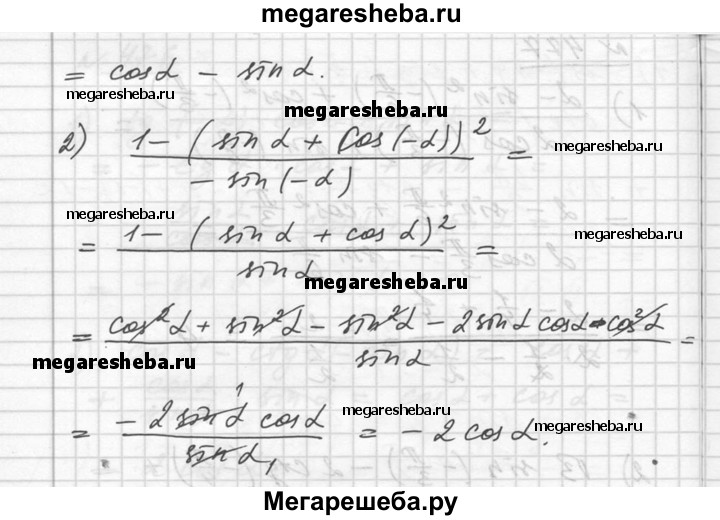 megaresheba.ru
= cos α − sin α.
megaresheba.ru megaresheba.ru
megaresheba.ru
2) (1 − (sin α + cos(−α))²) / (− sin(−α)) =
megaresheba.ru
megaresheba.ru
= (1 − (sin α + cos α)²) / (sin α) =
megaresheba.ru
megaresheba.ru
= (cos²α + sin²α − sin²α − 2 sin α cos α − cos²α) / (sin α) =
megaresheba.ru
= (−2 sin α cos α) / (sin α) = −2 cos α.
1
1
megaresheba.ru
megaresheba.ru megaresheba.ru
Мегарешеба.ру